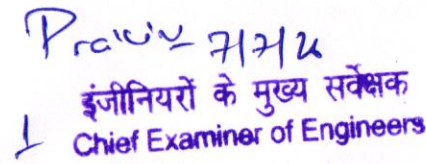 7/7/2
इंजीनियरों के मुख्य सर्वेक्षक
Chief Examiner of Engineers